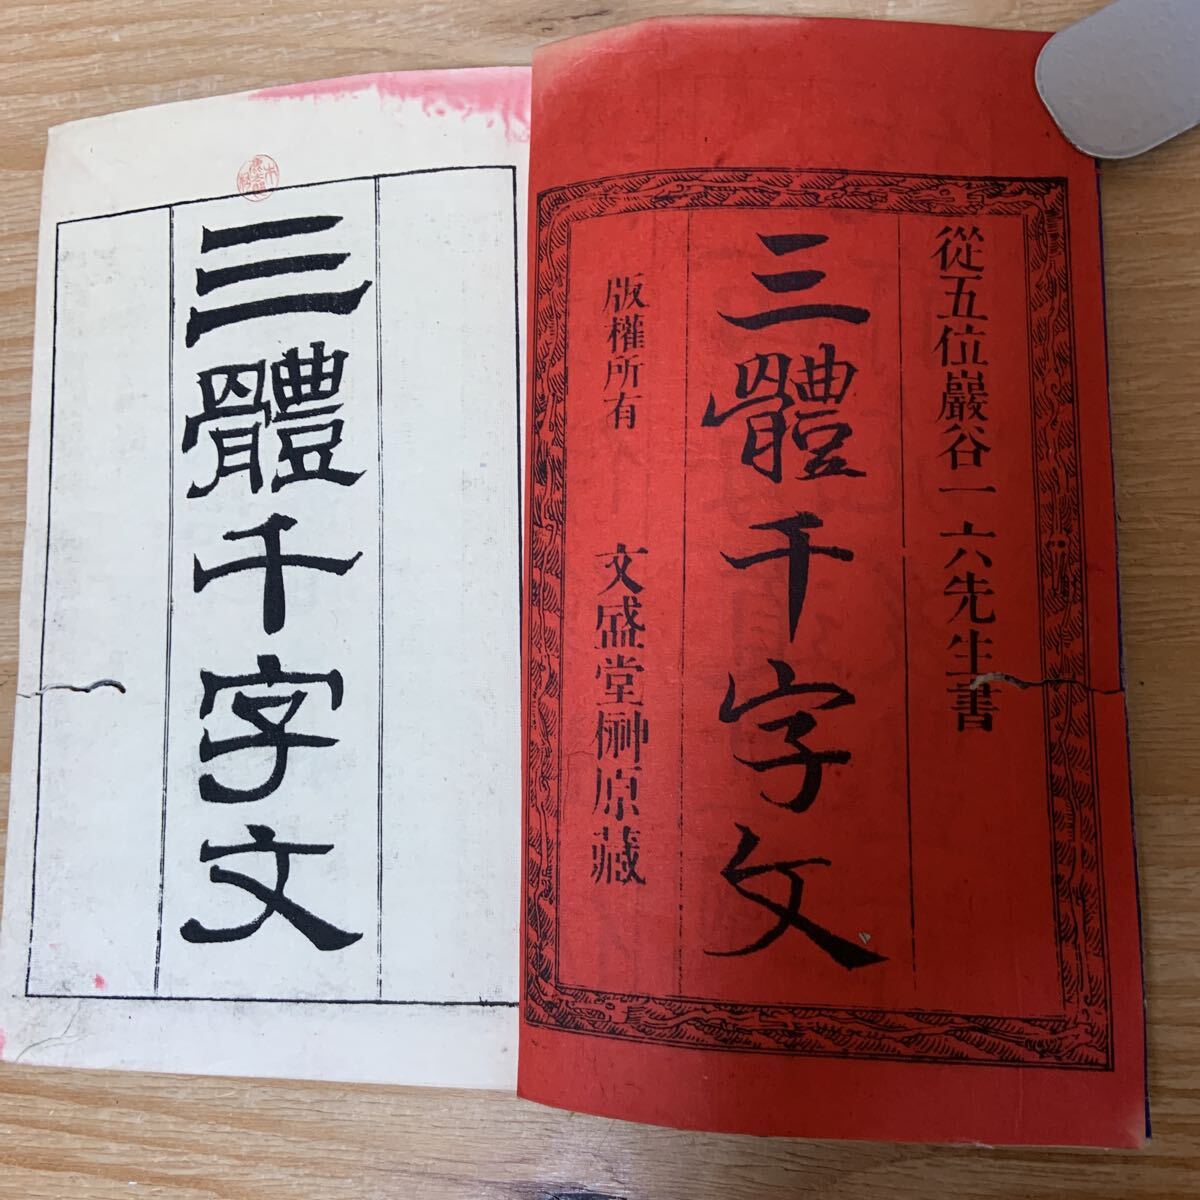 從五位巖谷一六先生書
三體千字文
版權所有
文盛堂榊原藏
三體千字文